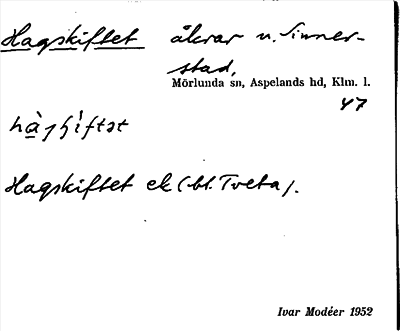 Hagskiftet åkrar u. Sinner-
stad,
Mörlunda sn, Aspelands hd, Klm. l.
47
Hagskiftet ek (bl. Tveta).
Ivar Modéer 1952